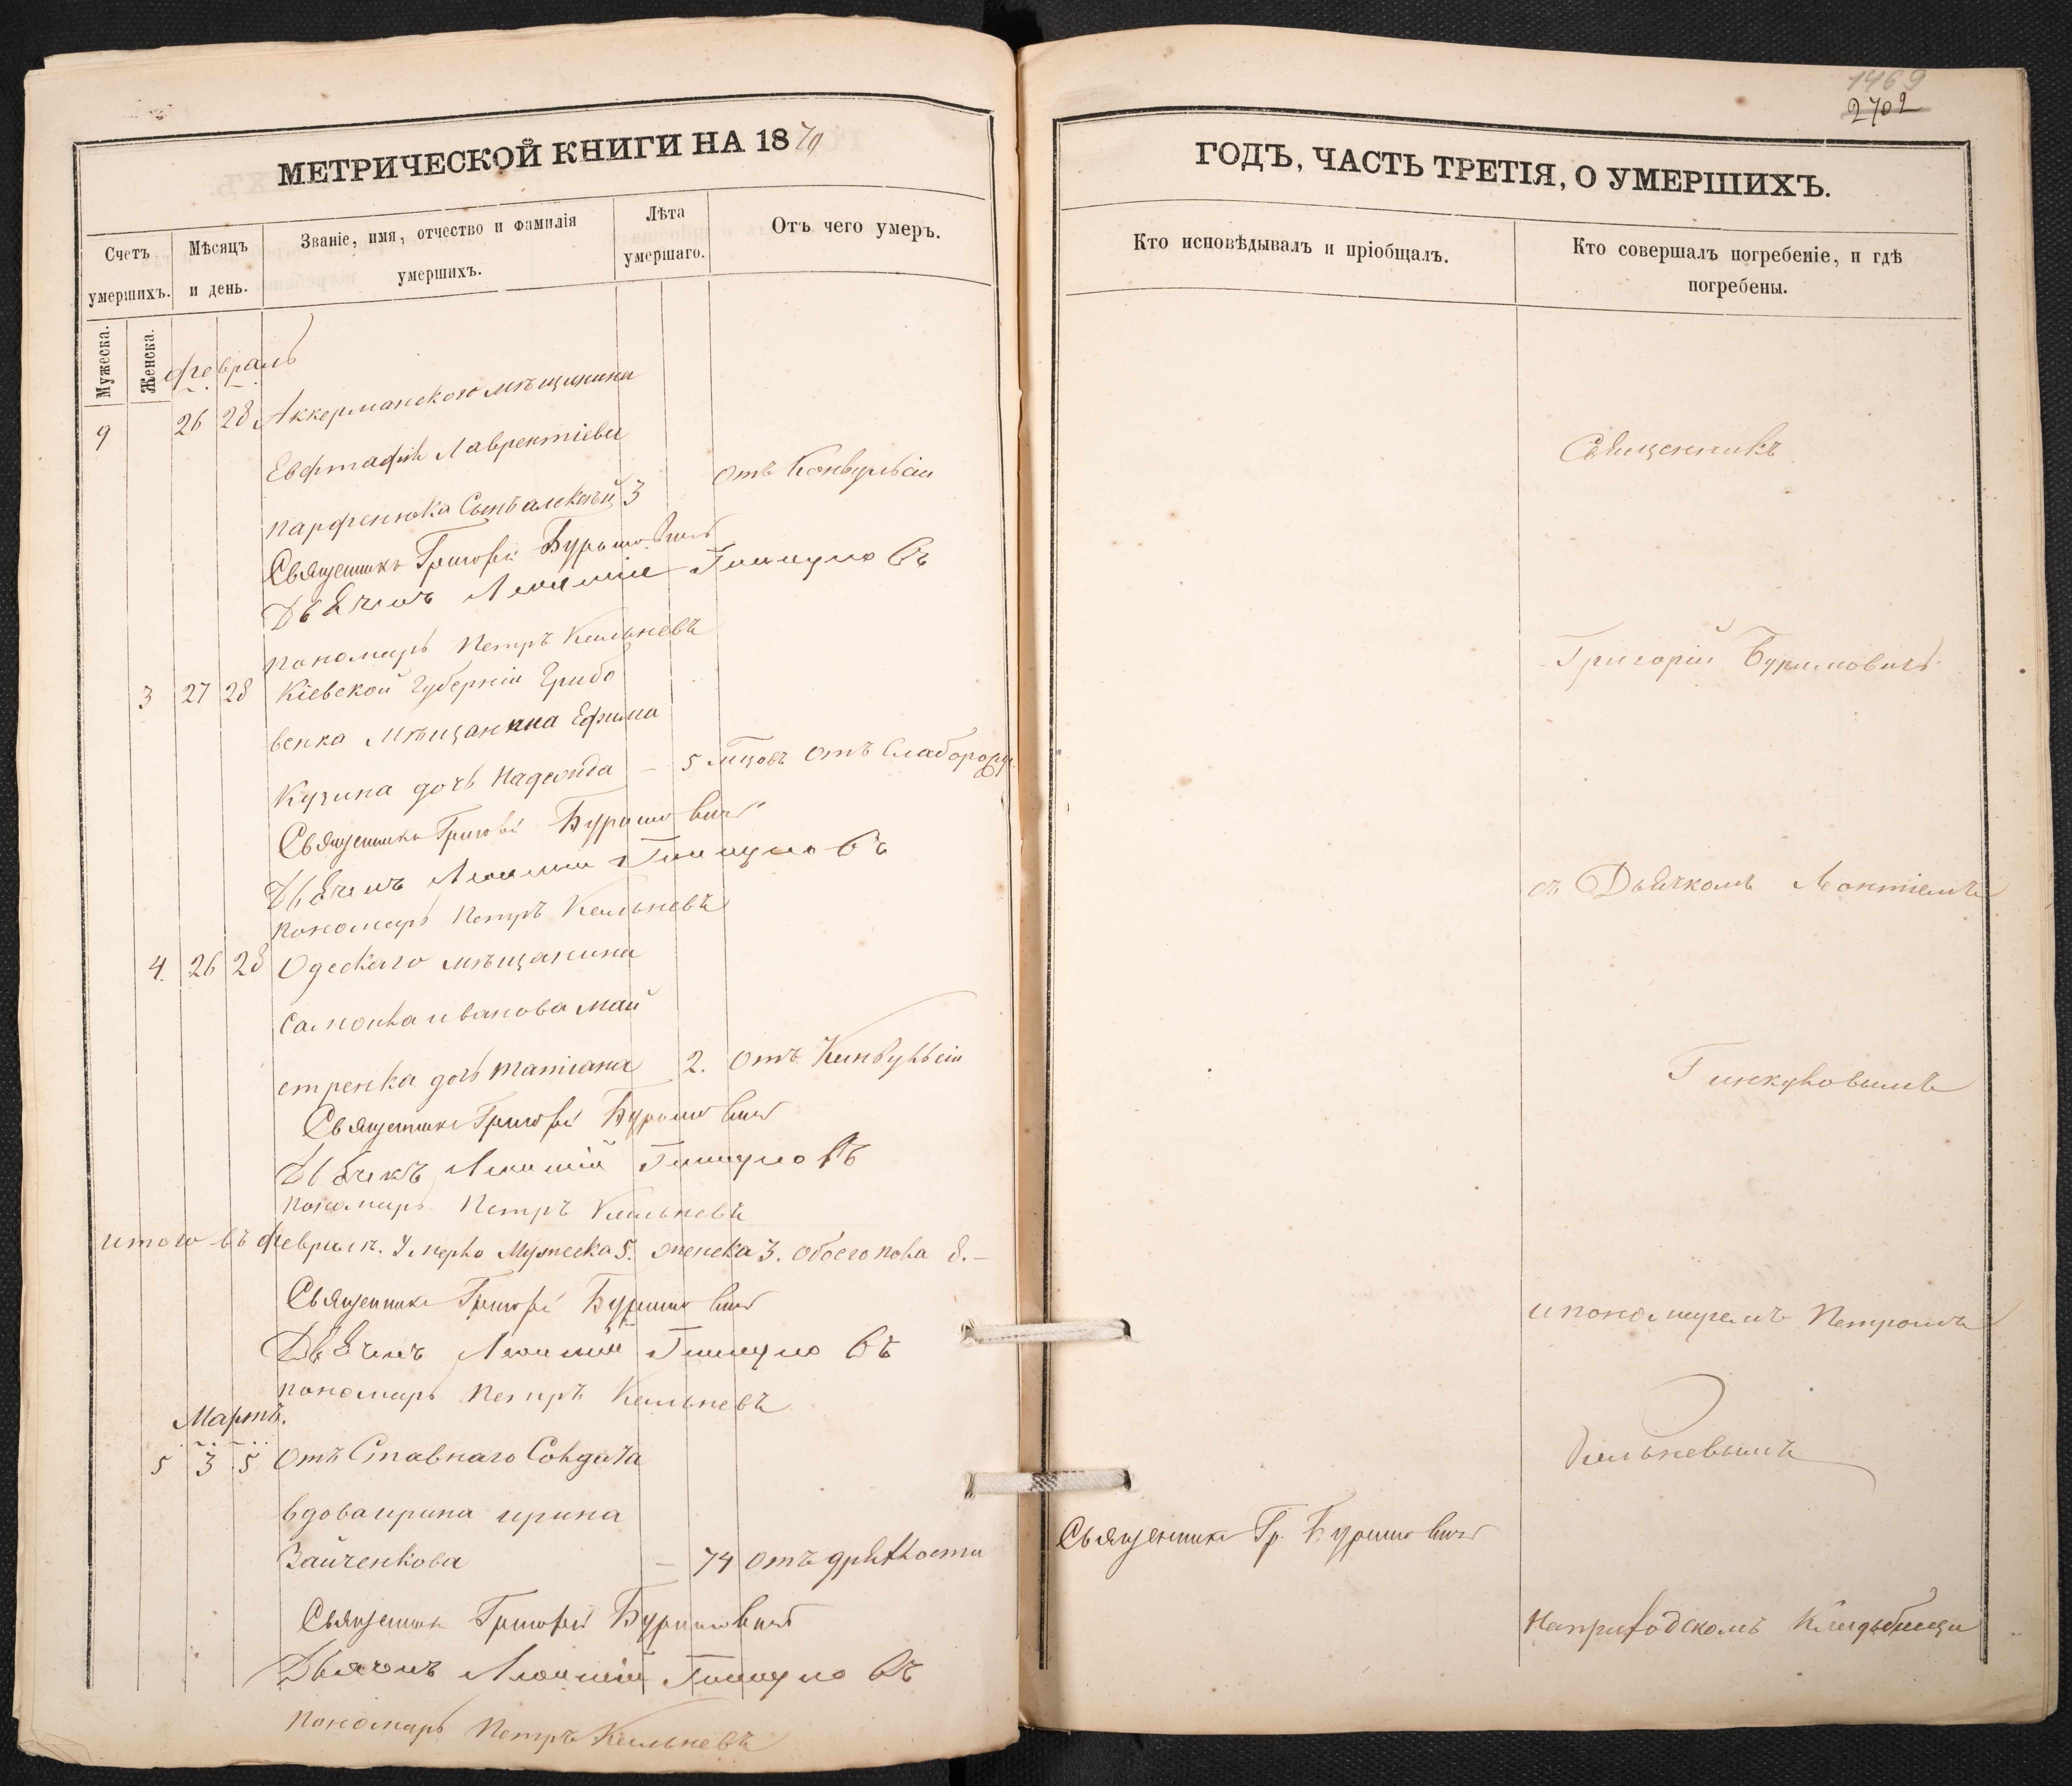 МЕТРИЧЕСКОЙ КНИГИ НА 1870
Счетъ умершихъ.
Мѣсяцъ и день.
Званіе, имя, отчество и фамилія умершихъ.
Лѣта умершаго.
Отъ чего умеръ.
Мужеска.
Женска.
февраль
9 26 28 Аккерманскою мѣщанина
Евстафія Лаврентіева
Парфенюка Сынъ Алексѣй 3 отъ Конвульсіи
Священникъ Григорій Буримовичъ
Дьячекъ Леонтій Гинкуловъ
пономарь Петръ Кельневъ
3 27 28 Кіевской Губерніи Грибо
венка мѣщанина Ефима
Кузина дочь Надежда – 5 мцовъ отъ Слаборожд.
Священникъ Григорій Буримовичъ
Дьячекъ Леонтій Гинкуловъ
пономарь Петръ Кельневъ
4. 26 28 Одескаго мѣщанина
Самойла иванова май
стренка дочь татіана 2. отъ Конвульсіи
Священникъ Григорій Буримовичъ
Дьячекъ Леонтій Гинкуловъ
пономарь Петръ Кельневъ
итого въ февралѣ. Умерло Мужеска 5. женска 3. обоего пола 8. –
Священникъ Григорій Буримовичъ
Дьячекъ Леонтій Гинкуловъ
пономарь Петръ Кельневъ
Мартъ.
5 3 5 отъ Ставнаго Солдата
вдова ирина ирина
Зайченкова – 74 отъ дряхлости
Священникъ Григорій Буримовичъ
Дьячокъ Леонтій Гинкуловъ
пономарь Петръ Кельневъ
1469
2702
ГОДЪ, ЧАСТЬ ТРЕТІЯ, О УМЕРШИХЪ.
Кто исповѣдывалъ и пріобщалъ.
Кто совершалъ погребеніе, и гдѣ погребены.
Священникъ
Григорій Буримовичъ
съ Дьячкомъ Леонтіемъ
Гинкуловымъ
и пономаремъ Петромъ
Кельневымъ
Священникъ Гр. Буримовичъ
На приходскомъ Кладьбищи